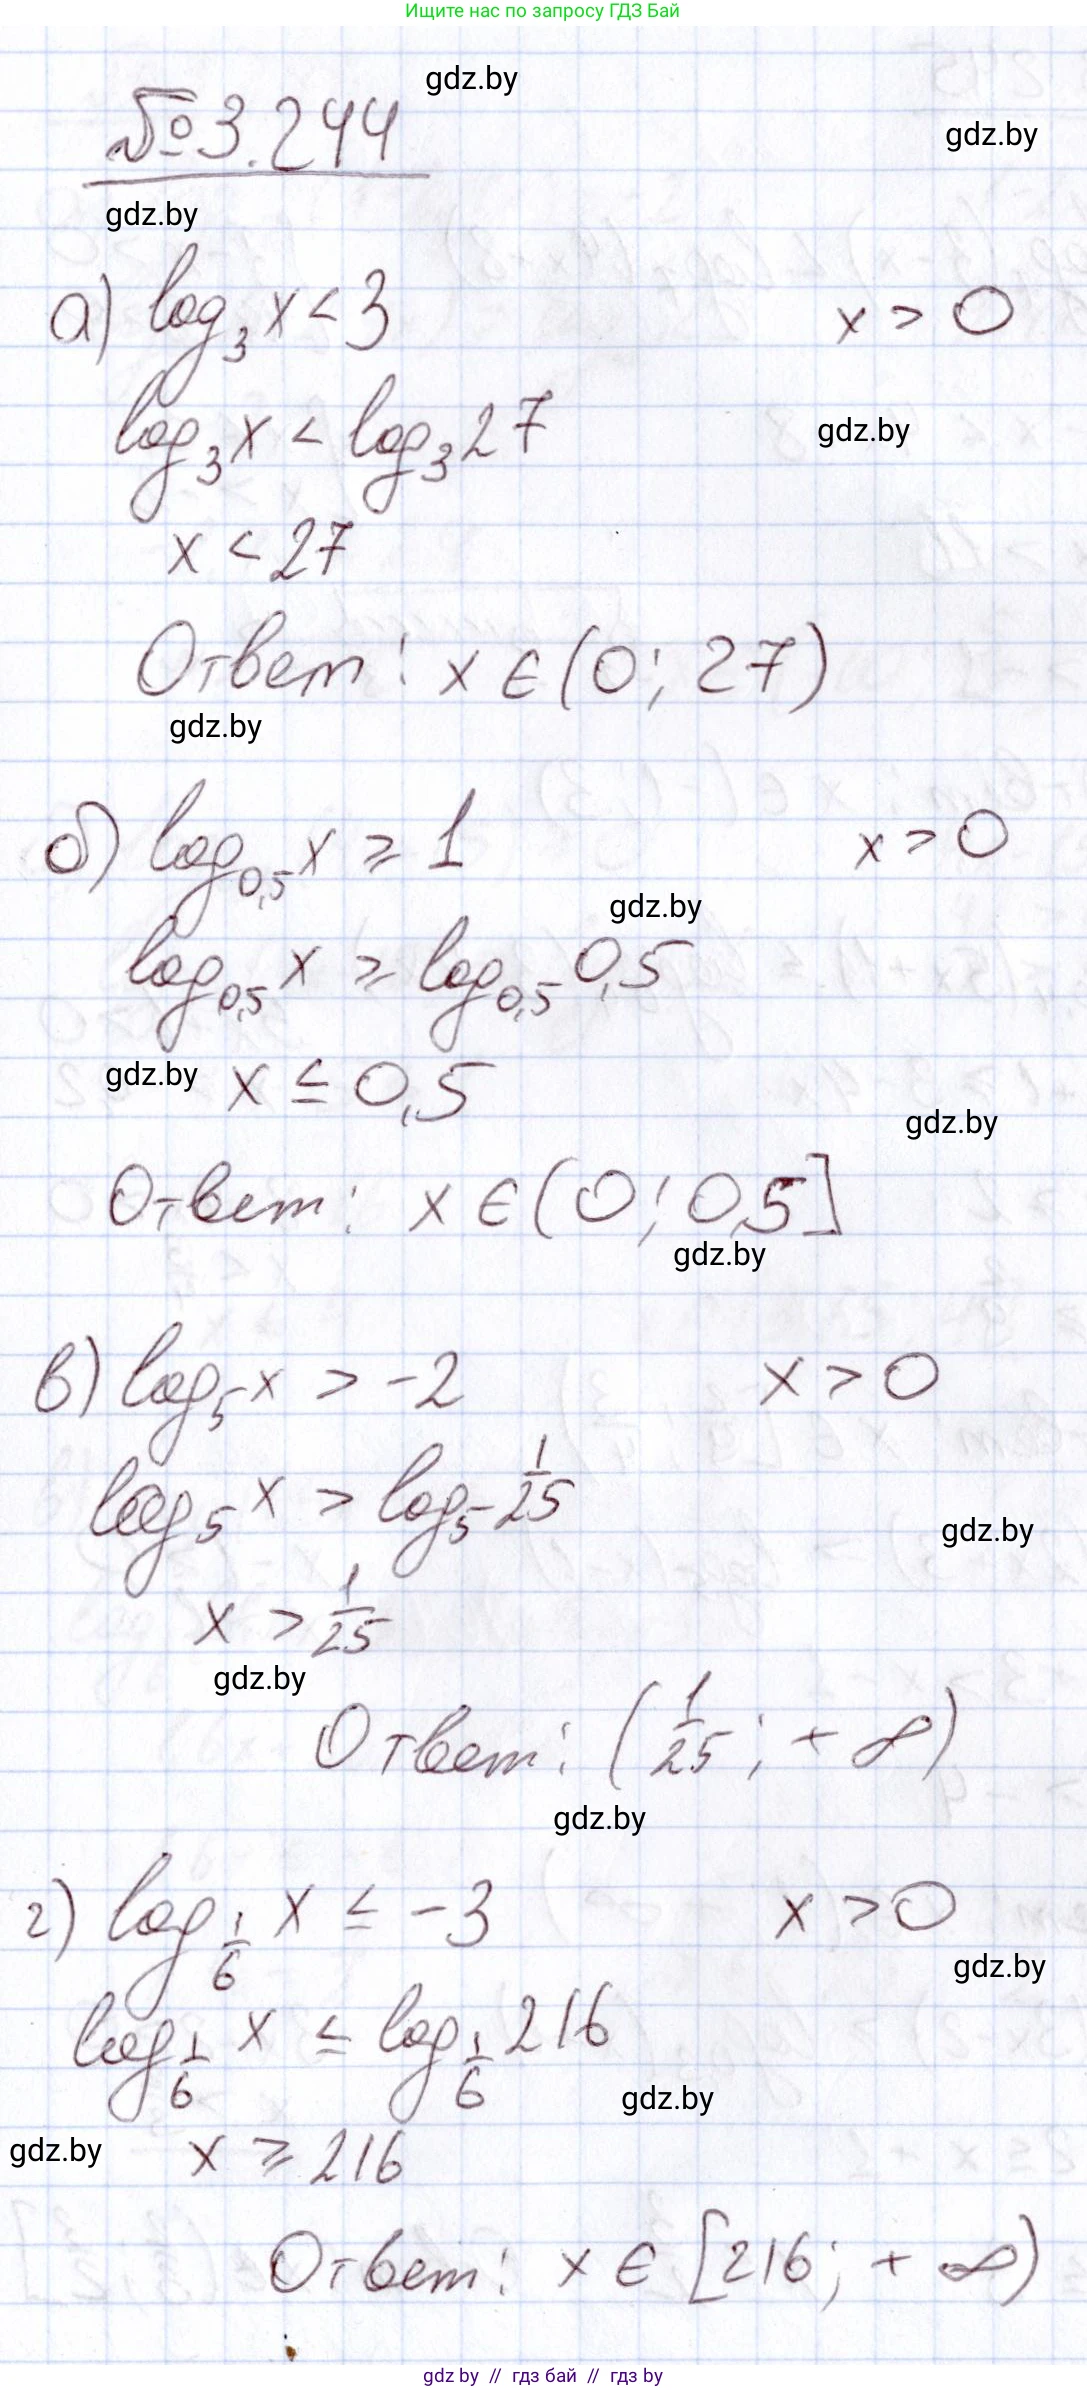 Ищите нас по запросу ГДЗ Бай
gdz.by
№3.244
gdz.by
gdz.by
а) log₃ x < 3 x > 0
log₃ x < log₃ 27
gdz.by
x < 27
Ответ: x ∈ (0; 27)
gdz.by
б) log₀,₅ x ⩾ 1 x > 0
gdz.by
log₀,₅ x ⩾ log₀,₅ 0,5
gdz.by
x ≤ 0,5
gdz.by
Ответ: x ∈ (0; 0,5]
gdz.by
в) log₅ x > -2 x > 0
log₅ x > log₅ 1/25
gdz.by
x > 1/25
gdz.by
Ответ: (1/25; +∞)
gdz.by
г) log_{1/6} x ≤ -3 x > 0
gdz.by
log_{1/6} x ≤ log_{1/6} 216
gdz.by
gdz.by
x ⩾ 216
Ответ: x ∈ [216; +∞)
gdz.by // гдз бай // гдз by